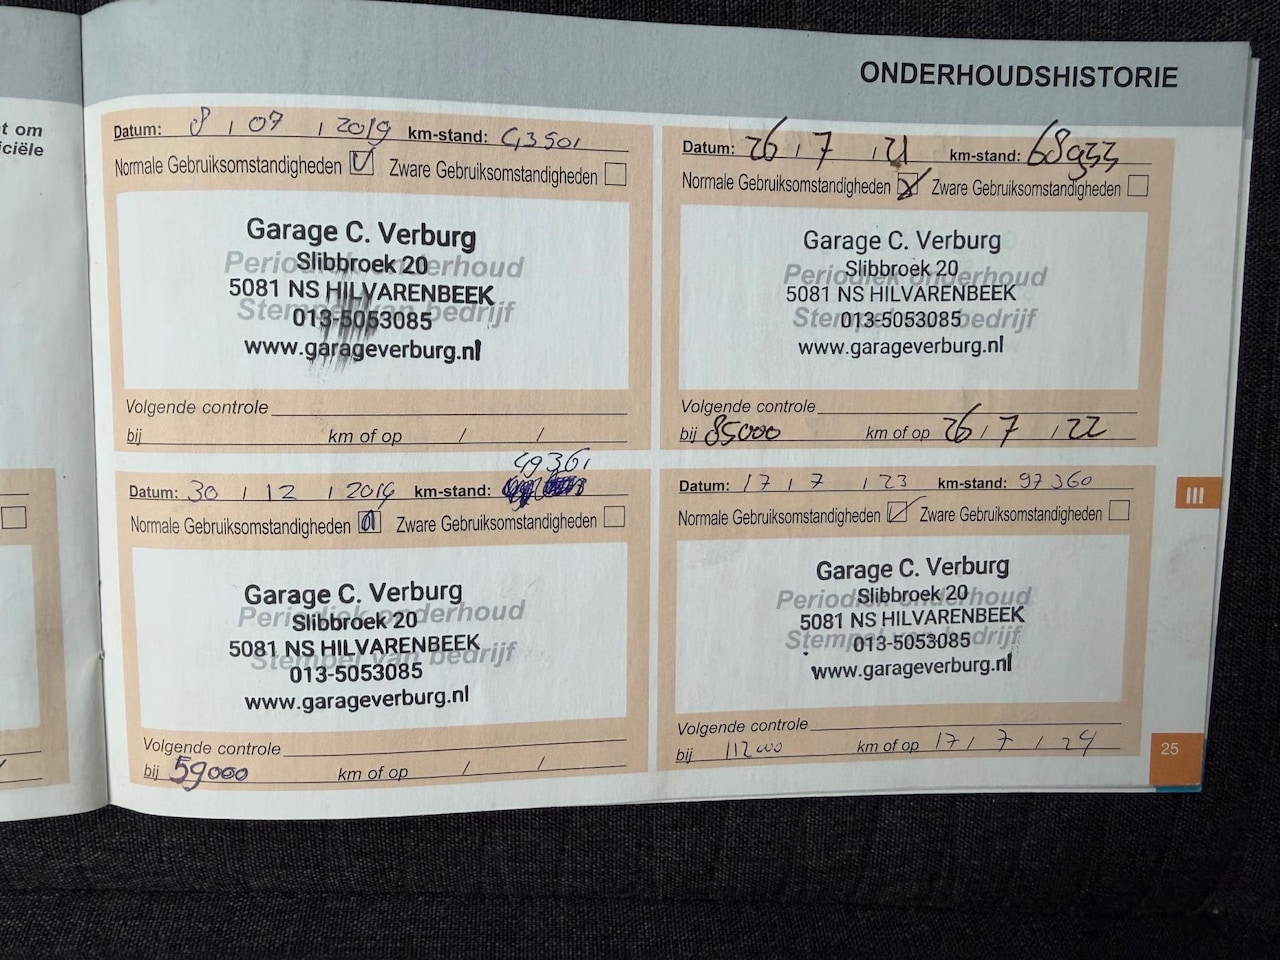 t om
iciële
ONDERHOUDSHISTORIE
Datum: 8 / 07 / 2019 km-stand: 43501
Normale Gebruiksomstandigheden Zware Gebruiksomstandigheden
Periodiek onderhoud
Stempel van bedrijf
Garage C. Verburg
Slibbroek 20
5081 NS HILVARENBEEK
013-5053085
www.garageverburg.nl
Volgende controle
bij km of op / /
Datum: 30 / 12 / 2019 km-stand: 49361
Normale Gebruiksomstandigheden Zware Gebruiksomstandigheden
Periodiek onderhoud
Stempel van bedrijf
Garage C. Verburg
Slibbroek 20
5081 NS HILVARENBEEK
013-5053085
www.garageverburg.nl
Volgende controle
bij 59000 km of op / /
Datum: 26 / 7 / 21 km-stand: 68933
Normale Gebruiksomstandigheden Zware Gebruiksomstandigheden
Periodiek onderhoud
Stempel van bedrijf
Garage C. Verburg
Slibbroek 20
5081 NS HILVARENBEEK
013-5053085
www.garageverburg.nl
Volgende controle
bij 85000 km of op 26 / 7 / 22
Datum: 17 / 7 / 23 km-stand: 97360
Normale Gebruiksomstandigheden Zware Gebruiksomstandigheden
Periodiek onderhoud
Stempel van bedrijf
Garage C. Verburg
Slibbroek 20
5081 NS HILVARENBEEK
013-5053085
www.garageverburg.nl
Volgende controle
bij 112000 km of op 17 / 7 / 24
III
25